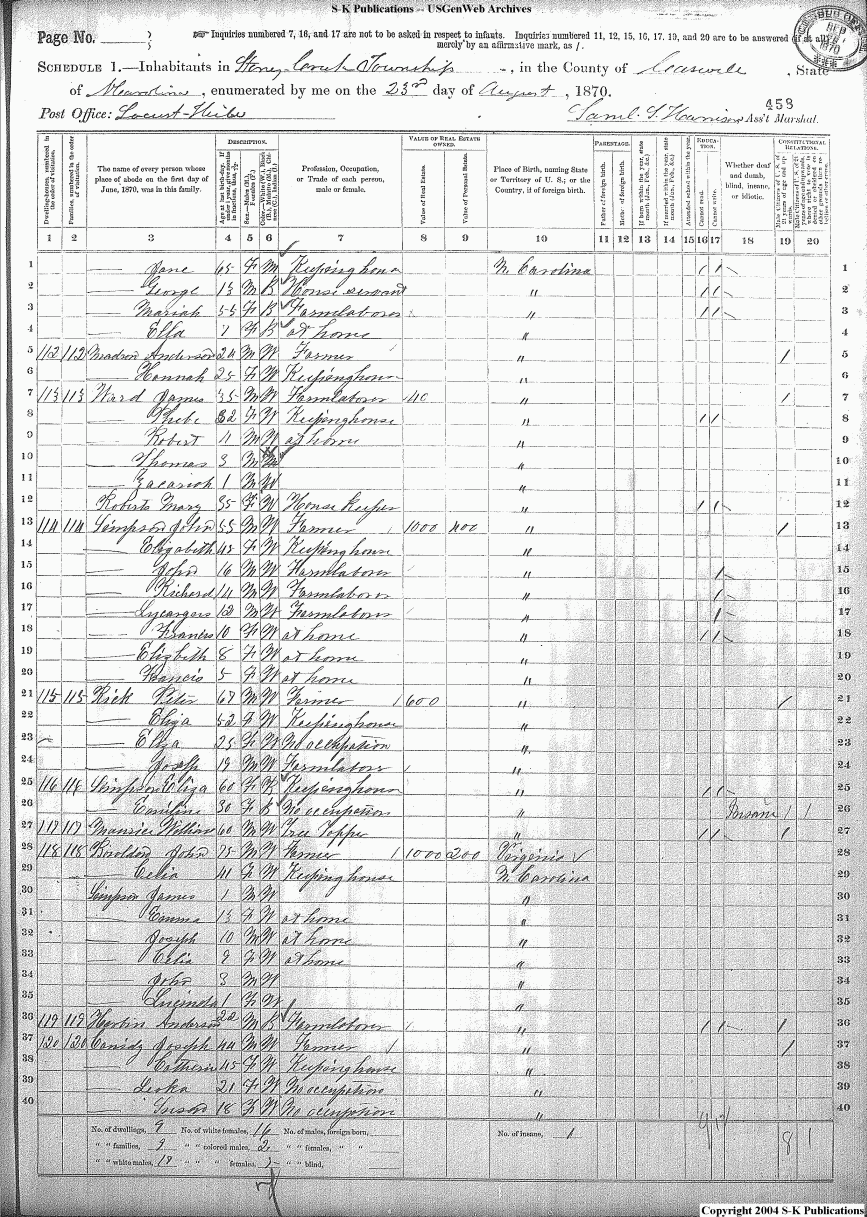 S-K Publications – USGenWeb Archives
Page No.
Inquiries numbered 7, 16, and 17 are not to be asked in respect to infants. Inquiries numbered 11, 12, 15, 16, 17, 19, and 20 are to be answered (if at all) merely by an affirmative mark, as /.
SCHEDULE 1.—Inhabitants in Stoney Creek Township, in the County of Caswell, State
of N Carolina, enumerated by me on the 23rd day of August, 1870.
458
Post Office: Locust Saml. S. Harrison Ass't Marshal.
DESCRIPTION. VALUE OF REAL ESTATE OWNED. PARENTAGE. EDUCATION. CONSTITUTIONAL RELATIONS.
Dwelling-houses, numbered in the order of visitation.
Families, numbered in the order of visitation.
The name of every person whose place of abode on the first day of June, 1870, was in this family.
Profession, Occupation, or Trade of each person, male or female.
Value of Real Estate.
Value of Personal Estate.
Place of Birth, naming State or Territory of U. S.; or the Country, if of foreign birth.
Father of foreign birth.
Mother of foreign birth.
If born within the year, state month (Jan., Feb., &c.)
If married within the year, state month (Jan., Feb., &c.)
Attended school within the year.
Cannot read.
Cannot write.
Whether deaf and dumb, blind, insane, or idiotic.
1 2 3 4 5 6 7 8 9 10 11 12 13 14 15 16 17 18 19 20
1 — Jane 65 F M Keeping house N. Carolina / / 1
2 — George 13 M B House servant " / / 2
3 — Mariah 55 F B Farmlaborer " / / 3
4 — Ella 7 F B at home " 4
5 112 112 Anderson 24 M W Farmer " / 5
6 — Hannah 25 F W Keeping house " 6
7 113 113 Ward James 35 M W Farmlaborer 40 " / 7
8 — Phebe 32 F W Keeping house " / / 8
9 — Robert 11 M W at home " 9
10 — Thomas 3 M W " 10
11 — Zacariah 1 M W " 11
12 Roberts Mary 35 F W House Keeper " / / 12
13 114 114 Simpson John 55 M W Farmer 1000 400 " / 13
14 — Elizabeth 45 F W Keeping house " 14
15 — John 16 M W Farmlaborer " / 15
16 — Richard 14 M W Farmlaborer " / 16
17 — Lycargers 12 M W Farmlaborer " / 17
18 — Frances 10 F W at home " / / 18
19 — Elizbeth 8 F W at home " 19
20 — Francis 5 F W at home " 20
21 115 115 Rick Peter 67 M W Farmer 600 " / 21
22 — Eliza 52 F W Keeping house " 22
23 — Eliza 25 F W No occupation " 23
24 — Joseph 19 M W Farmlaborer " 24
25 116 116 Simpson Eliza 60 F B Keeping house " / / 25
26 — Emiline 30 F B No occupation " Insane / / 26
27 117 117 William 60 M W Tree Topper " / / / 27
28 118 118 John 75 M W Farmer 1000 200 Virginia 28
29 — Celia 41 F W Keeping house N. Carolina 29
30 Simpson James 1 M W " 30
31 — Emma 13 F W at home " 31
32 — Joseph 10 M W at home " 32
33 — Celia 9 F W at home " 33
34 — John 3 M W " 34
35 — Lucinda 1 F W " 35
36 119 119 Anderson 22 M B Farmlaborer " / / / 36
37 120 120 Joseph 44 M W Farmer " / 37
38 — Catherin 45 F W Keeping house " 38
39 — 21 F W No occupation " 39
40 — Susan 18 F W No occupation " 40
No. of dwellings, 9 No. of white females, 16 No. of males, foreign born, No. of insane, 1 8 1
" " families, 9 " " colored males, 2 " " females, " "
" " white males, " " " females, 5 " " blind,
Copyright 2004 S-K Publications